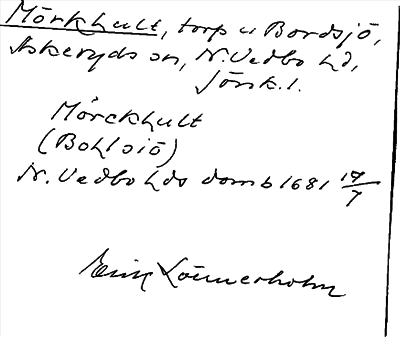 Mörkhult, torp u Bordsjö,
Askeryds sn, N. Vedbo hd,
Jönk. l.
Mörckhult
(Bohlsiö)
N. Vedbo hds domb 1681 17/7
Erik Lönnerholm